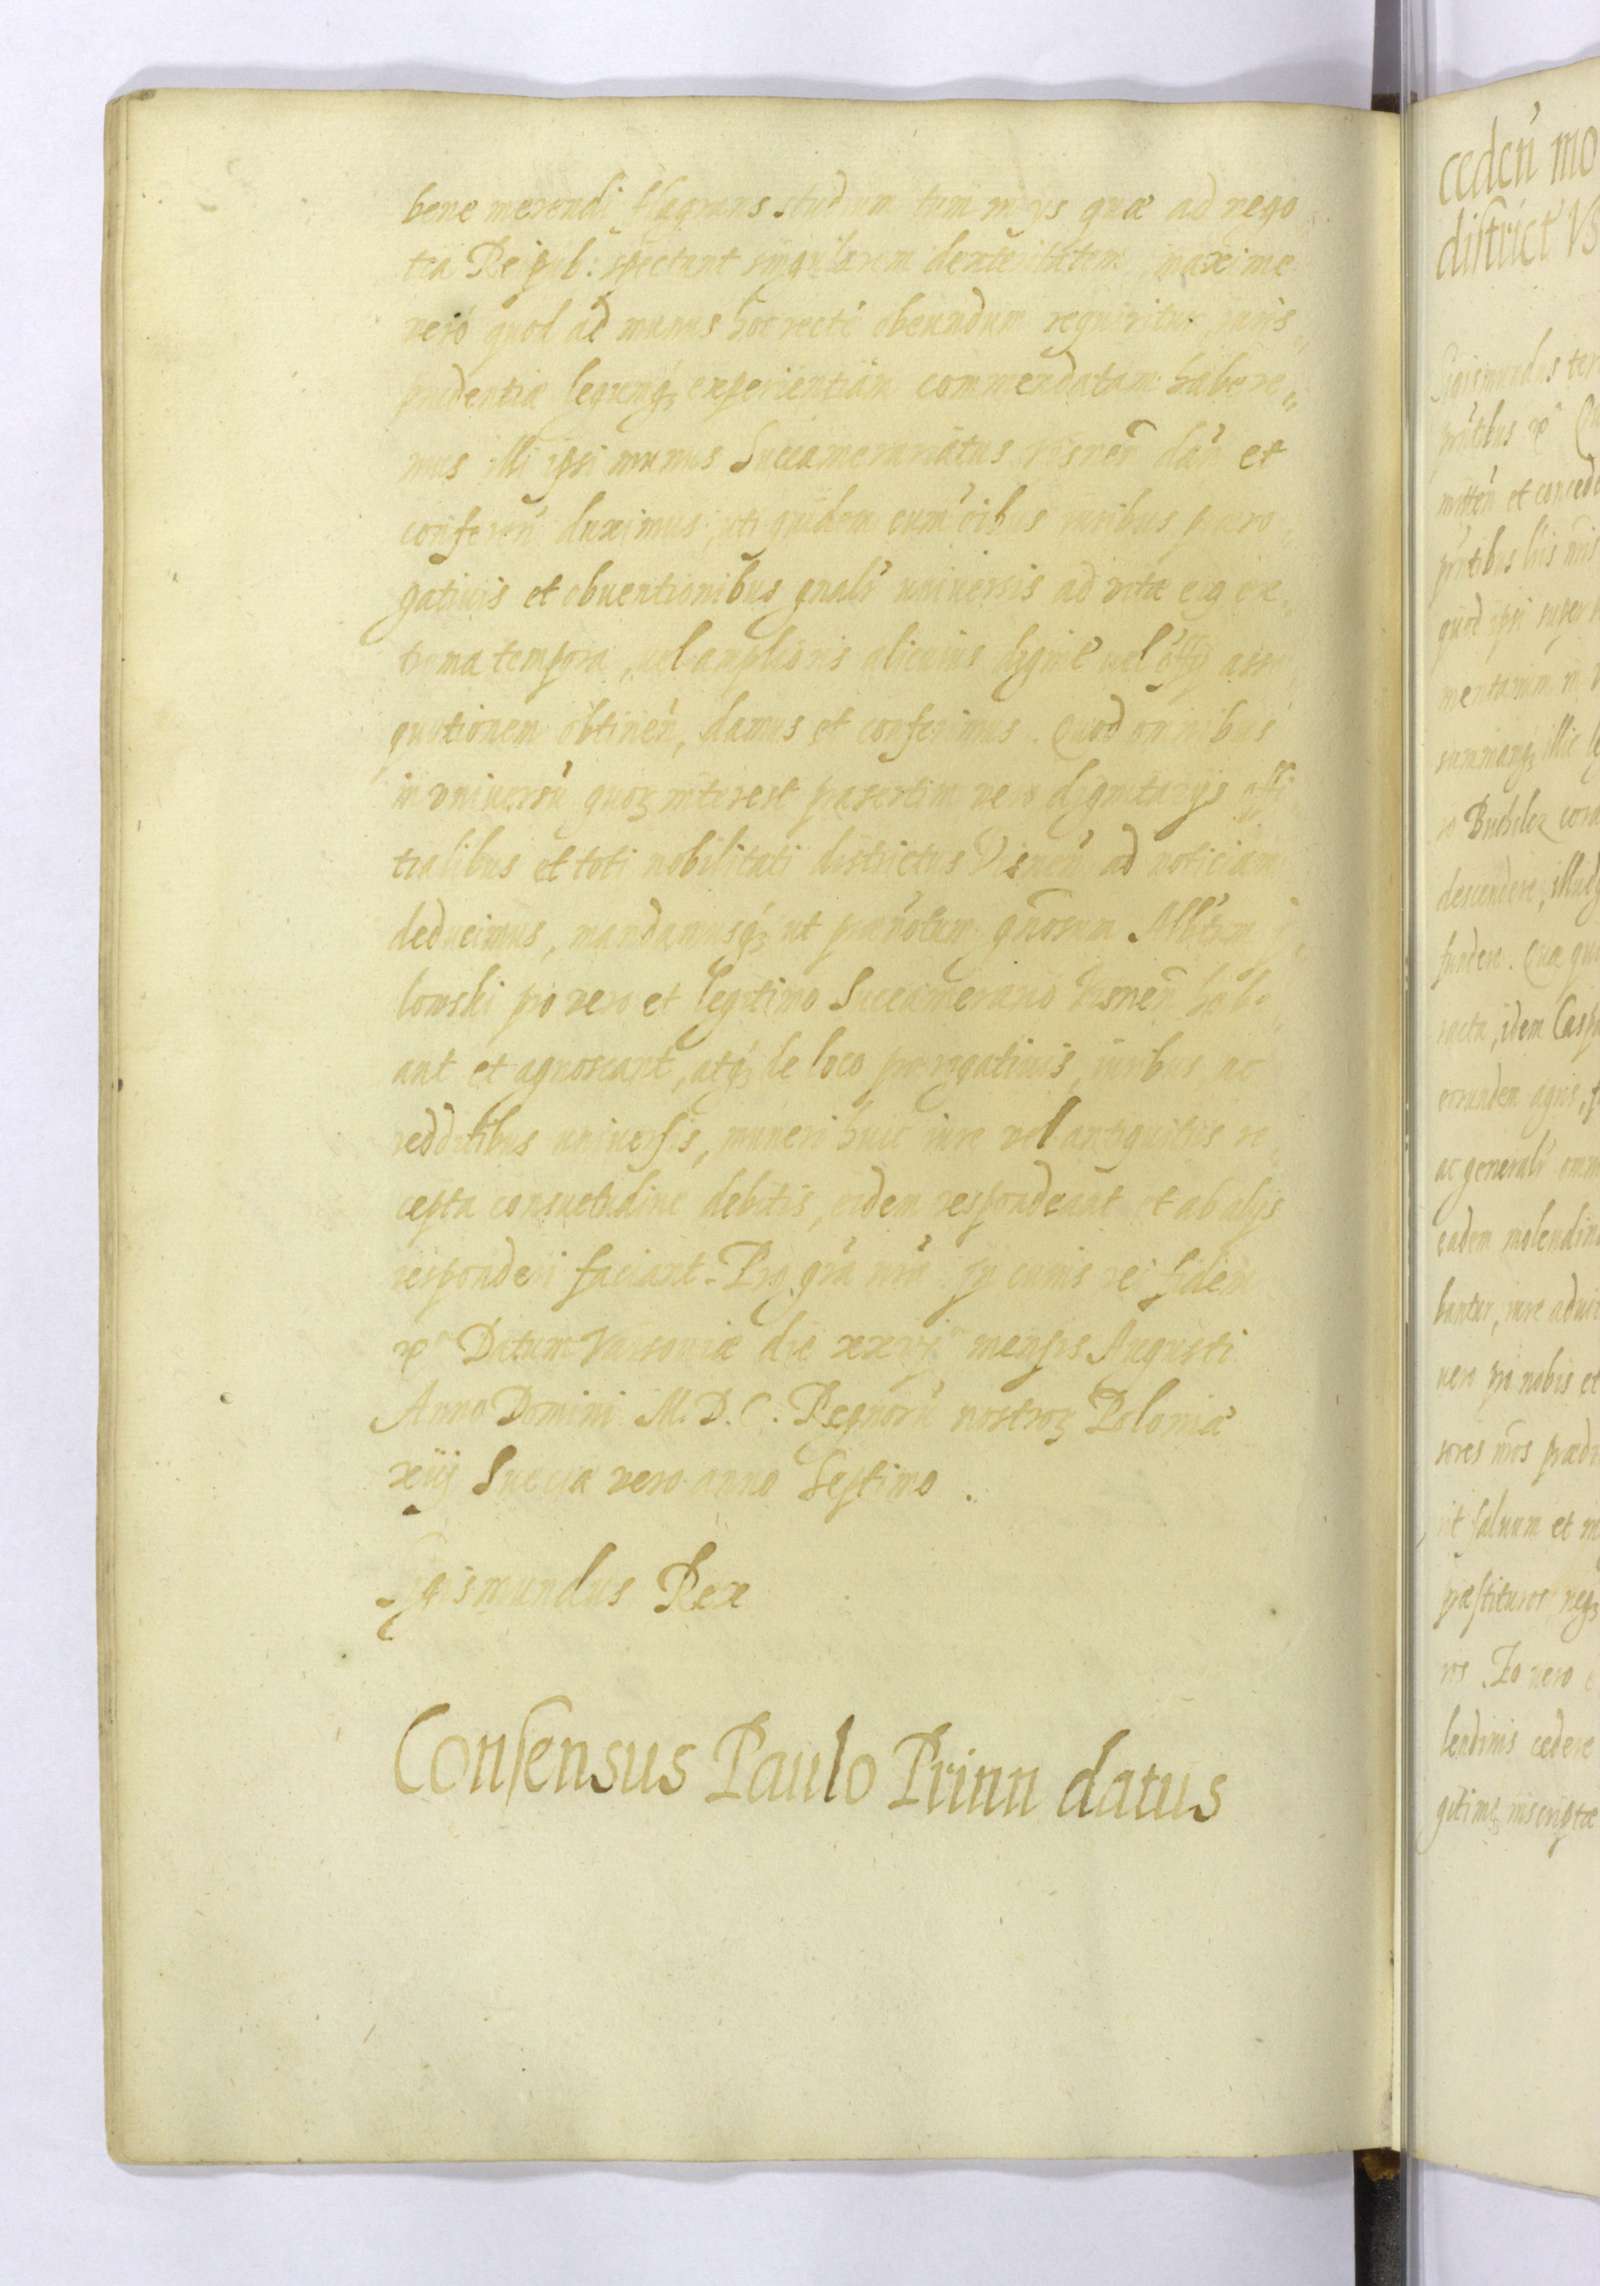 bene merendi flagrans studium tum in ijs quæ ad nego
tia Reipub: spectant singularem dexteritatem, maxime
vero quod ad munus hoc recté obeundum requiritur, iuris
prudentia legumq; experientiam commendatam habere„
mus illi ipsi munus Succamerariatus Visneñ dañ et
confereñ duximus, uti quidem cum oibus iuribus præro
gatiuis et obuentionibus gnalr uniuersis ad vitæ eiq ex„
trema tempora, vel amplioris alicuius dignie vel offy asse
quutionem obtineñ, damus et conferimus. Quod omnibus
in vniuersũ quoꝝ interest præsertim vero dignitarijs offi
cialibus et toti nobilitati districtus Visneñ ad noticiam
deducimus, mandamusq; ut prænotum gñosum Albtum
lowski pro vero et legitimo Succamerario Visneñ habe
ant et agnoscant, atq; de loco prærogatiuis, iuribus, ac
redditibus uniuersis, muneri huic iure vel antiquitus re
cepta consuetudine debitis, eidem respondeant et ab alijs
responderi faciant. Pro gra nra. In cuius rei fidem
Datum Varsouiæ die xxvj mensis Augusti
Anno Domini M. D. C. Regnorũ nostroꝝ Poloniæ
xiij Sueciæ vero anno Septimo.
Sigismundus Rex
Consensus Paulo Prinn datus
cedeñ mo
district Vs
Sigismundus ter
mitteñ et concede
quod ipsi super
ro Buchelez cora
descendere, illudq
fundere. Quæ qui
racta, idem Caspa
eorundem agris, s
ac generalr omn
eadem molendin
bantur, iure aduit
vero pro nobis et
sores nros prædi
ut saluum et in
præstituror neq;
ros. Eo vero
lendinis cedere
gitimeq; inscriptæ